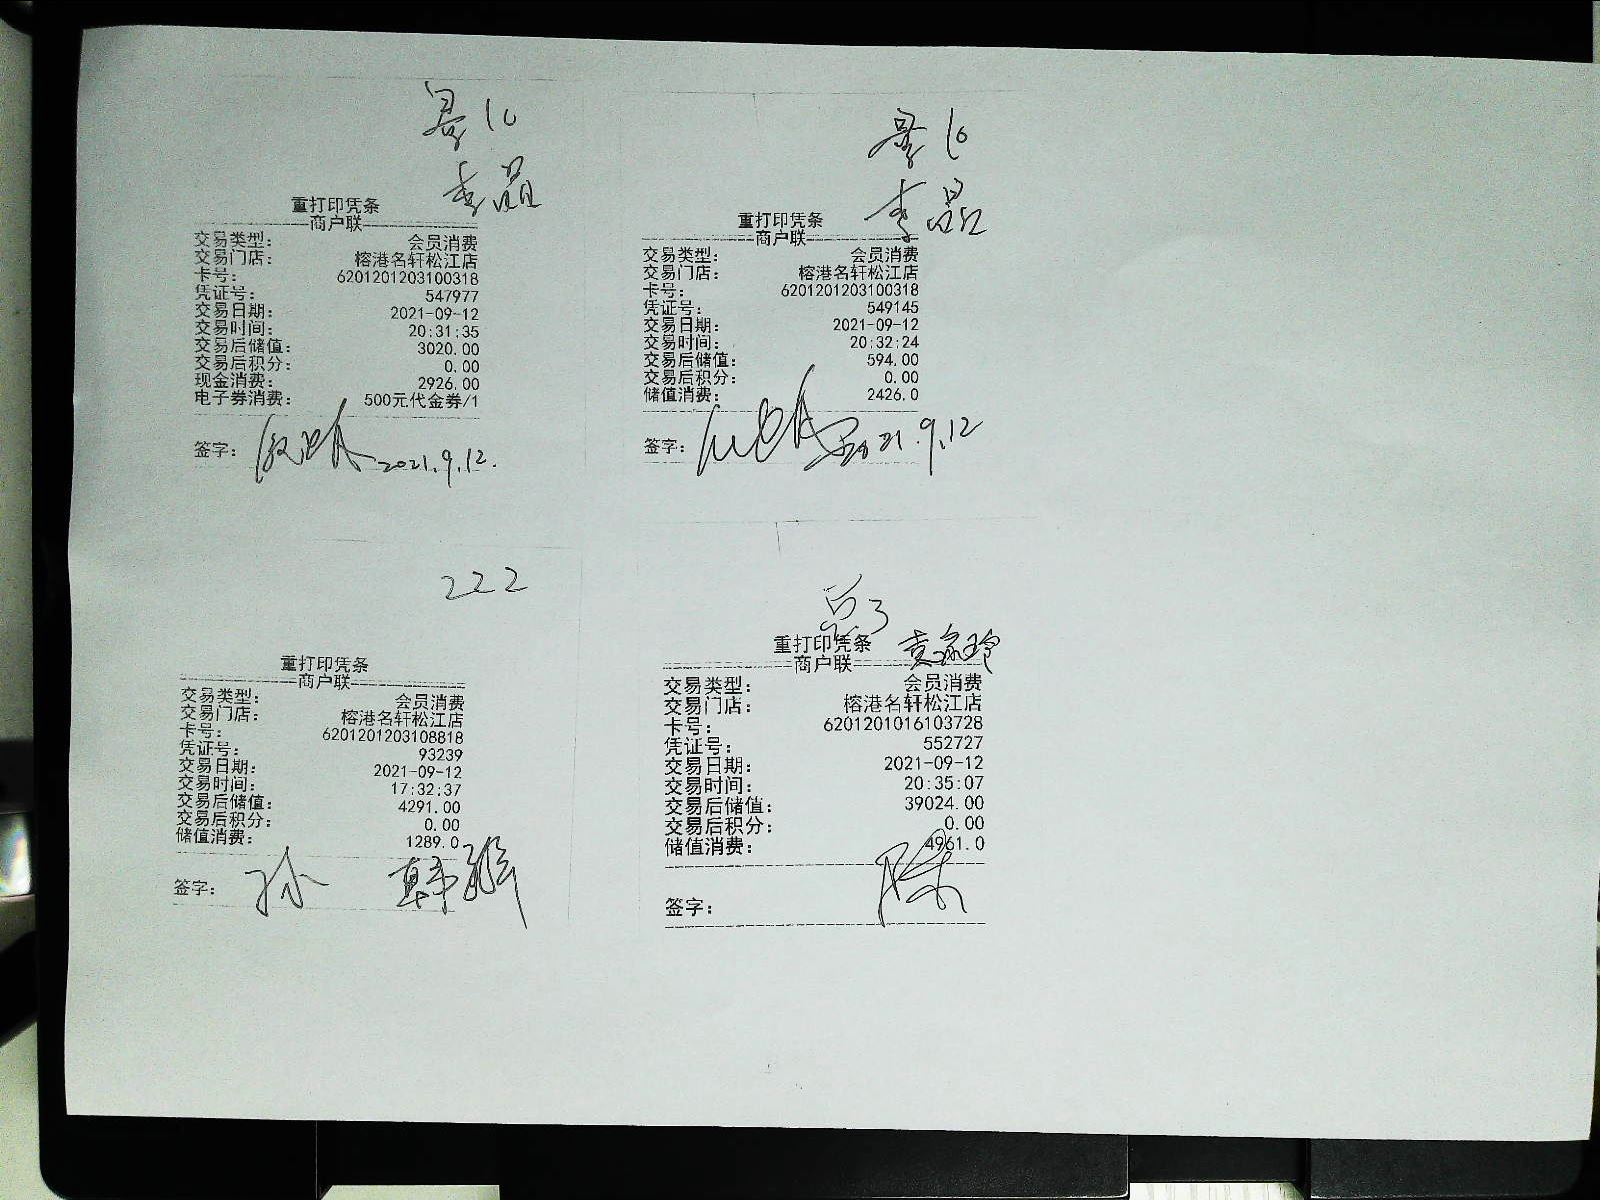 景16
李晶
重打印凭条
商户联
交易类型: 会员消费
交易门店: 榕港名轩松江店
卡号: 6201201203100318
凭证号: 547977
交易日期: 2021-09-12
交易时间: 20:31:35
交易后储值: 3020.00
交易后积分: 0.00
现金消费: 2926.00
电子券消费: 500元代金券/1
签字: 2021.9.12.
景16
李晶
重打印凭条
商户联
交易类型: 会员消费
交易门店: 榕港名轩松江店
卡号: 6201201203100318
凭证号: 549145
交易日期: 2021-09-12
交易时间: 20:32:24
交易后储值: 594.00
交易后积分: 0.00
储值消费: 2426.0
签字: 2021.9.12
222
重打印凭条
商户联
交易类型: 会员消费
交易门店: 榕港名轩松江店
卡号: 6201201203108818
凭证号: 93239
交易日期: 2021-09-12
交易时间: 17:32:37
交易后储值: 4291.00
交易后积分: 0.00
储值消费: 1289.0
签字: 孙
重打印凭条
商户联
交易类型: 会员消费
交易门店: 榕港名轩松江店
卡号: 6201201016103728
凭证号: 552727
交易日期: 2021-09-12
交易时间: 20:35:07
交易后储值: 39024.00
交易后积分: 0.00
储值消费: 4961.0
签字: 陈